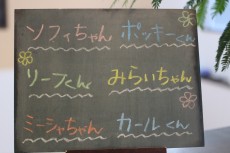 ソフィちゃん ポッキーくん
リーフくん みらいちゃん
ミーシャちゃん カールくん